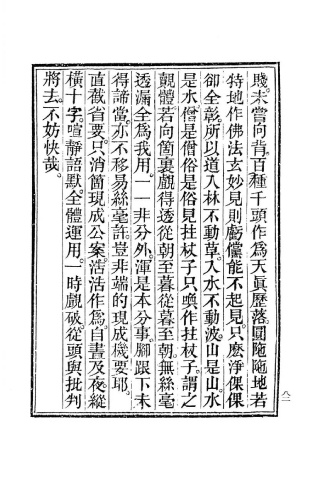 賤。未嘗向背。百種千頭作為天眞歷落。圓陁陁地若
特地作佛法玄妙見則虧。儻能不起見。只麽淨倮倮
卻全彰。所以道入林不動草。入水不動波。山是山水
是水。僧是僧俗是俗。見拄杖子只喚作拄杖子。謂之
覿體。若向箇裏覷得透。從朝至暮從暮至朝。無絲毫
透漏。全為我用。一一非分外。渾是本分事。腳跟下未
得諦當。亦不移易絲毫許。豈非端的現成機要耶。
直截省要。只消箇現成公案。活活作為。自晝及夜縱
橫十字。喧靜語默。全體運用。一時覷破。從頭與批判
將去。不妨快哉。
八二